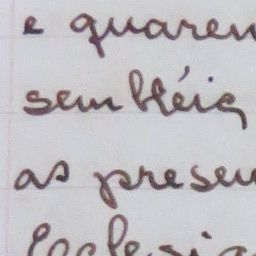 e quaren
sembléia
as presen
Eclesia